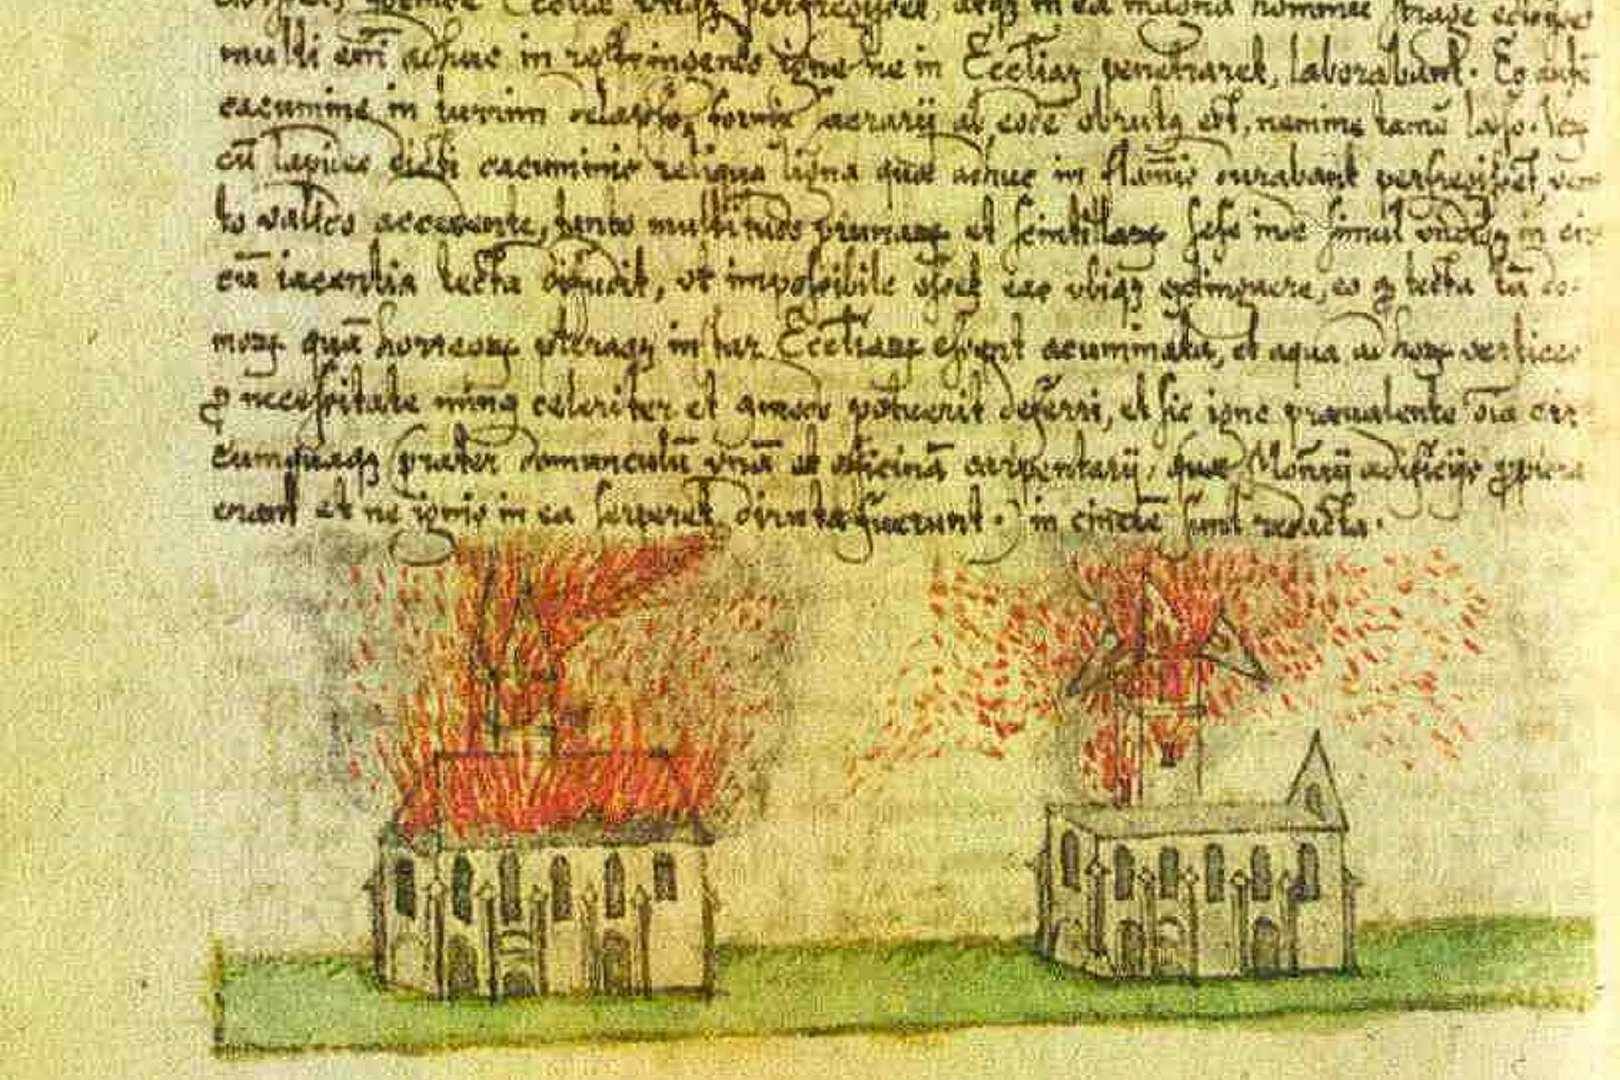 multi em̃ adhuc in restringendo igne ne in Ecc̃liaꝫ penetraret, laborabant. Eo aute
cacumine in turrim delapso, fornix aerarij ab eode obrutꝫ est, nemine tamẽ laeso.
cũ lapides dicti cacuminis reliqua ligna quae adhuc in flam̃is durabant perfregissent, ven
to valido accedente, tanto multitudo prunarꝝ et scintillarꝝ sese inde simul undiqꝫ in cir
cũ iacentia tecta diffudit, ut impossibile esset eas ubiqꝫ extinguere, eo ꝙ tecta tã do:
morꝝ quã horreorꝝ pleraqꝫ instar Ecc̃liarꝝ essent acuminata, et aqua ad horꝝ vertices
ꝓ necessitate nimis celeriter et commode potuerit deferri, et sic igne praevalente oĩa cir
cumquaqꝫ (praeter domunculũ unã et officinã carpentarij, quae Mon̄rij aedificijs
erant et ne ignis in ea serperet, diruta fuerunt.) in cinerẽ sunt redacta.